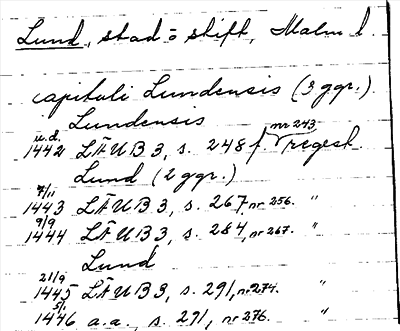 Lund, stad o stift, Malm l.
capituli Lundensis (3 ggr.)
Lundensis
u.d. nr 243
1442 LÄUB 3, s. 248 f regest
Lund (2 ggr.)
7/11
1443 LÄUB 3, s. 267, nr 256. "
9/9
1444 LÄUB 3, s. 284, nr 267. "
Lund
21/9
1445 LÄUB 3, s. 291, nr 274. "
5/1
1446 a.a., s. 291, nr 276. "